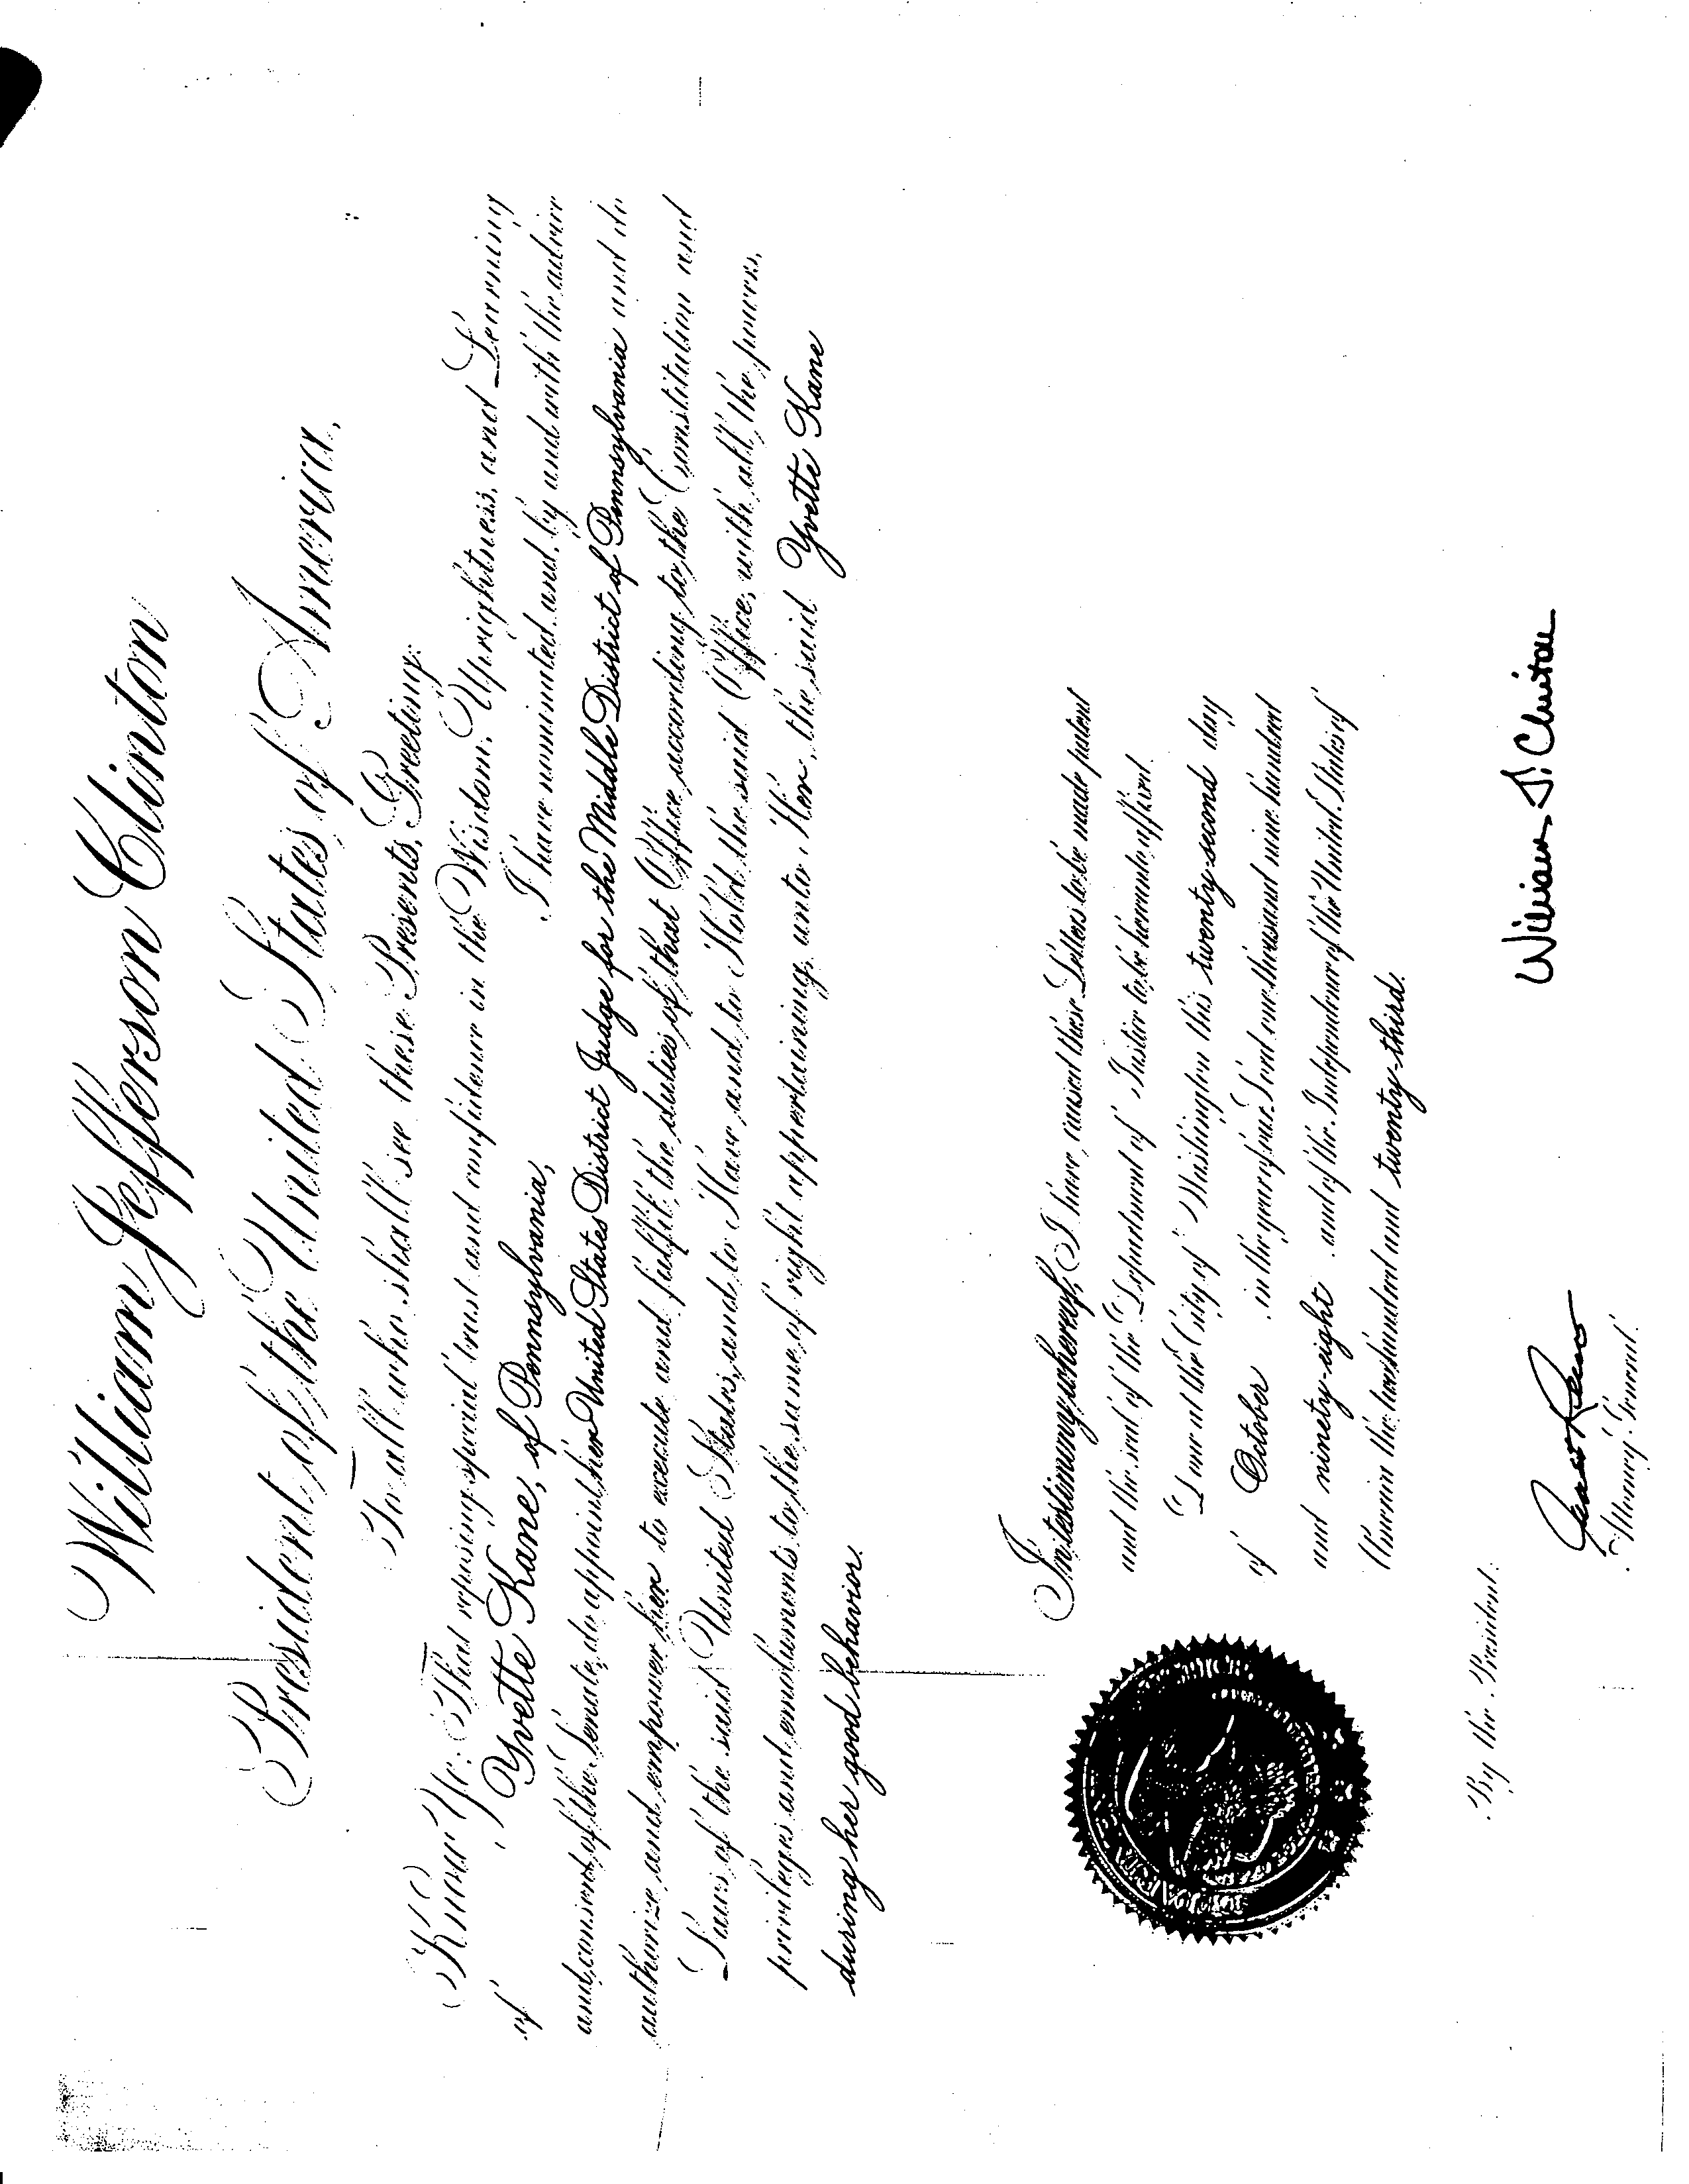 William Jefferson Clinton
President of the United States of America,
To all who shall see these Presents, Greeting:
Know Ye: That reposing special trust and confidence in the Wisdom, Uprightness, and Learning
of Yvette Kane, of Pennsylvania, I have nominated and, by and with the advice
and consent of the Senate, do appoint her United States District Judge for the Middle District of Pennsylvania and do
authorize and empower her to execute and fulfil the duties of that Office according to the Constitution and
Laws of the said United States, and to Have and to Hold the said Office, with all the powers,
privileges and emoluments to the same of right appertaining, unto Her, the said Yvette Kane
during her good behavior.
In testimony whereof, I have caused these Letters to be made patent
and the seal of the Department of Justice to be hereunto affixed.
Done at the City of Washington this twenty-second day
of October in the year of our Lord one thousand nine hundred
and ninety-eight and of the Independence of the United States of
America the two hundred and twenty-third.
By the President:
William J. Clinton
Janet Reno
Attorney General.